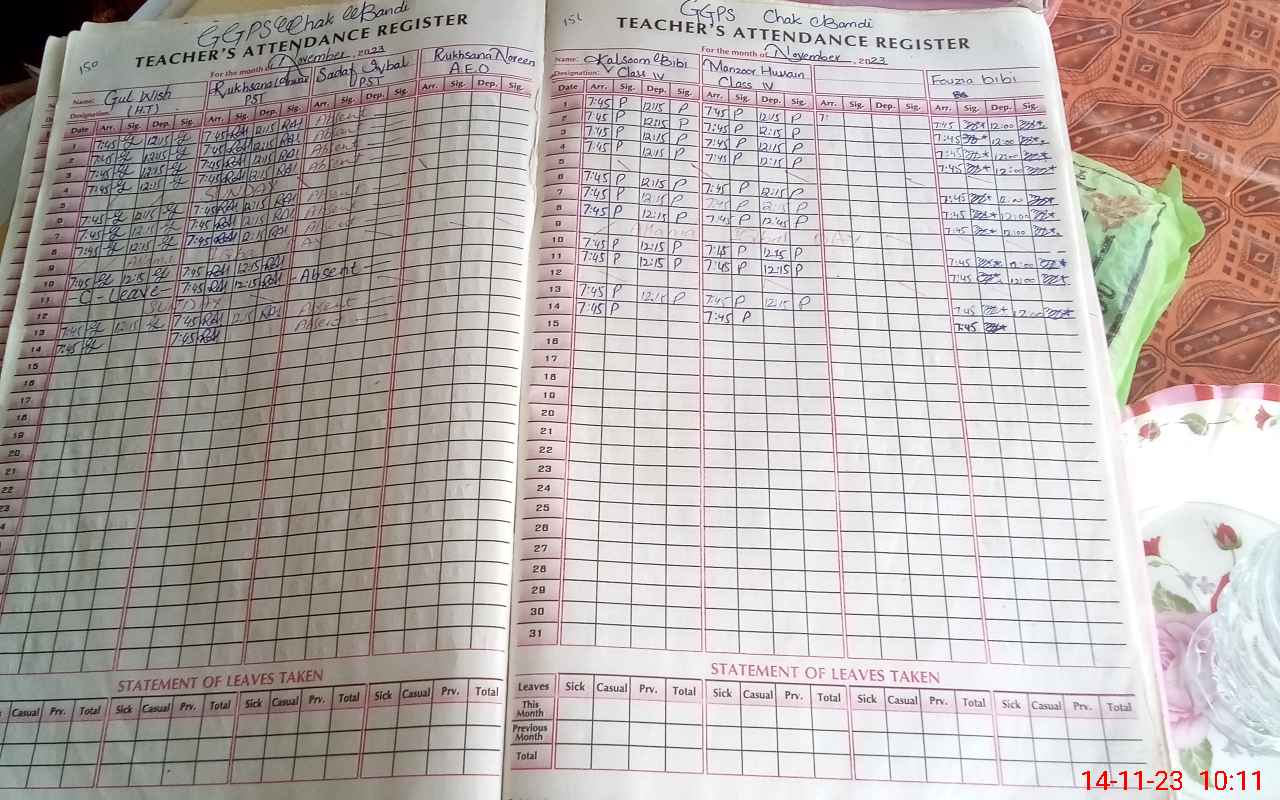 150
GGPS Chak Bandi
TEACHER'S ATTENDANCE REGISTER
For the month of November 2023
Name: Gul Wish
Designation: (H.T)
PST
Sadaf Iqbal
PST
Rukhsana Noreen
A.E.O
Date Arr. Sig. Dep. Sig. Arr. Sig. Dep. Sig. Arr. Sig. Dep. Sig. Arr. Sig. Dep. Sig.
1 7:45 12:15 7:45 RAI 12:15 RAI Absent
2 7:45 12:15 7:45 RAI 12:15 RAI Absent
3 7:45 12:15 7:45 RAI 12:15 RAI Absent
4 7:45 12:15 7:45 RAI 12:15 RAI Absent
5 SUNDAY
6 7:45 12:15 7:45 RAI 12:15 RAI Absent
7 7:45 12:15 7:45 RAI 12:15 RAI Absent
8 7:45 12:15 7:45 RAI 12:15 RAI Absent
9
10 7:45 12:15 7:45 RAI 12:15 RAI Absent
11 C-Leave 7:45 RAI 12:15 RAI
12 SUNDAY
13 7:45 12:15 7:45 RAI 12:15 RAI Absent
14 7:45 7:45 RAI Absent
15
16
17
18
19
20
21
22
23
STATEMENT OF LEAVES TAKEN
Casual Prv. Total Sick Casual Prv. Total Sick Casual Prv. Total Sick Casual Prv. Total
151
GGPS Chak Bandi
TEACHER'S ATTENDANCE REGISTER
For the month of November 2023
Name: Kalsoom Bibi
Designation: Class IV
Manzoor Hussain
Class IV
Fouzia bibi
Date Arr. Sig. Dep. Sig. Arr. Sig. Dep. Sig. Arr. Sig. Dep. Sig. Arr. Sig. Dep. Sig.
1 7:45 P 12:15 P 7:45 P 12:15 P 7: 7:45 12:00
2 7:45 P 12:15 P 7:45 P 12:15 P 7:45 12:00
3 7:45 P 12:15 P 7:45 P 12:15 P 7:45 12:00
4 7:45 P 12:15 P 7:45 P 12:15 P 7:45 12:00
5
6 7:45 P 12:15 P 7:45 P 12:15 P 7:45 12:00
7 7:45 P 12:15 P 7:45 P 12:15 P 7:45 12:00
8 7:45 P 12:15 P 7:45 P 12:45 P 7:45 12:00
9 Allama Iqbal DAY
10 7:45 P 12:15 P 7:15 P 12:15 P 7:45 12:00
11 7:45 P 12:15 P 7:45 P 12:15 P 7:45 12:00
12
13 7:45 P 12:15 P 7:45 P 12:15 P 7:45 12:00
14 7:45 P 7:45 P 7:45
15
16
17
18
19
20
21
22
23
24
25
26
27
28
29
30
31
STATEMENT OF LEAVES TAKEN
Leaves Sick Casual Prv. Total Sick Casual Prv. Total Sick Casual Prv. Total Sick Casual Prv. Total
This Month
Previous Month
Total
14-11-23 10:11